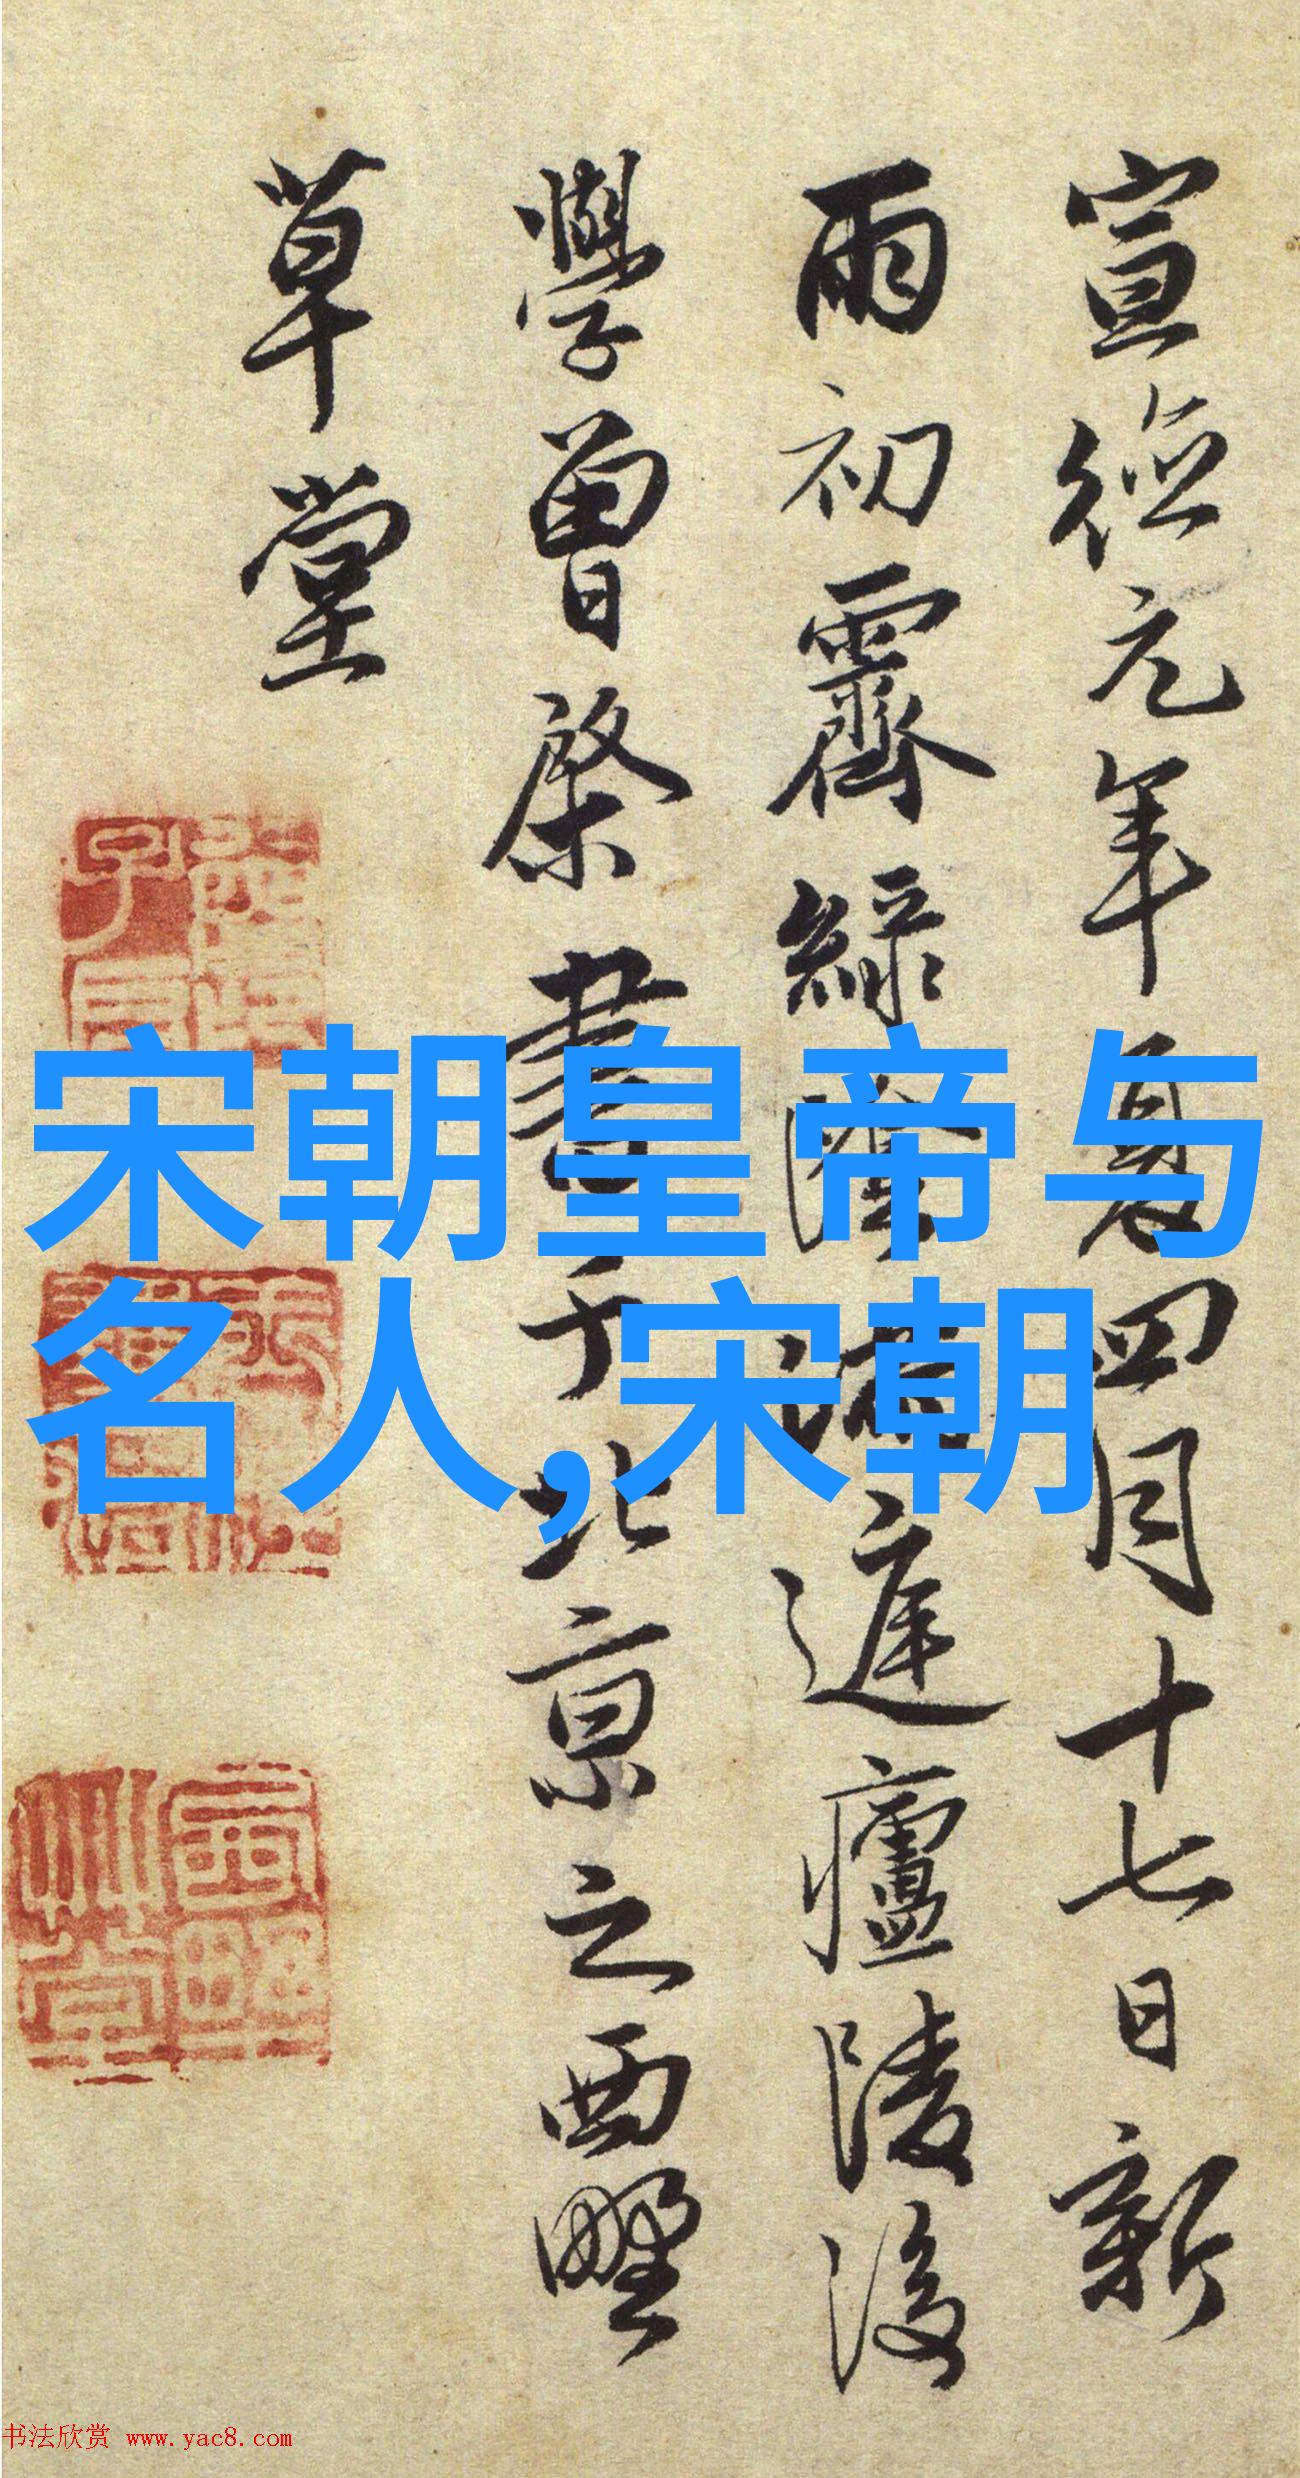 宣德元年夏四月十七日新
雨初霽綠陰滿庭廬陵後
學曾棨書于北京之西墅
草堂
宋朝皇帝与
名人,宋朝
书法欣赏 www.yac8.com